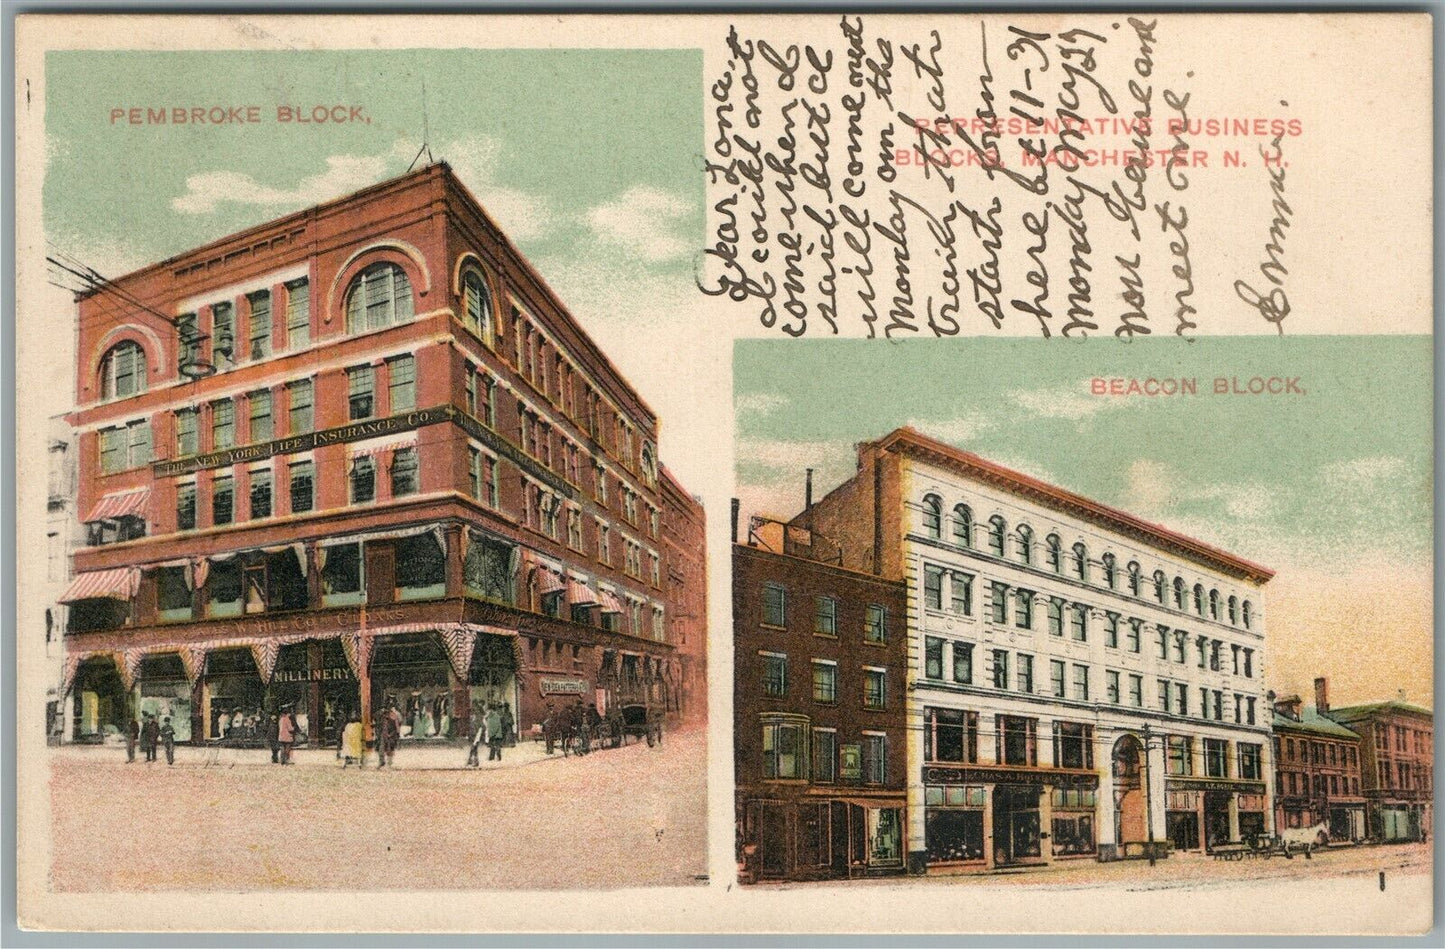 PEMBROKE BLOCK,
REPRESENTATIVE BUSINESS
BLOCKS, MANCHESTER N. H.
BEACON BLOCK,
Dear Lona,
I could not
come when I
said but I
will come out
Monday on the
train that
starts from
here at 11-31
Monday May 29.
Now be sure and
meet me.
Emma.
THE NEW YORK LIFE INSURANCE CO.
MILLINERY